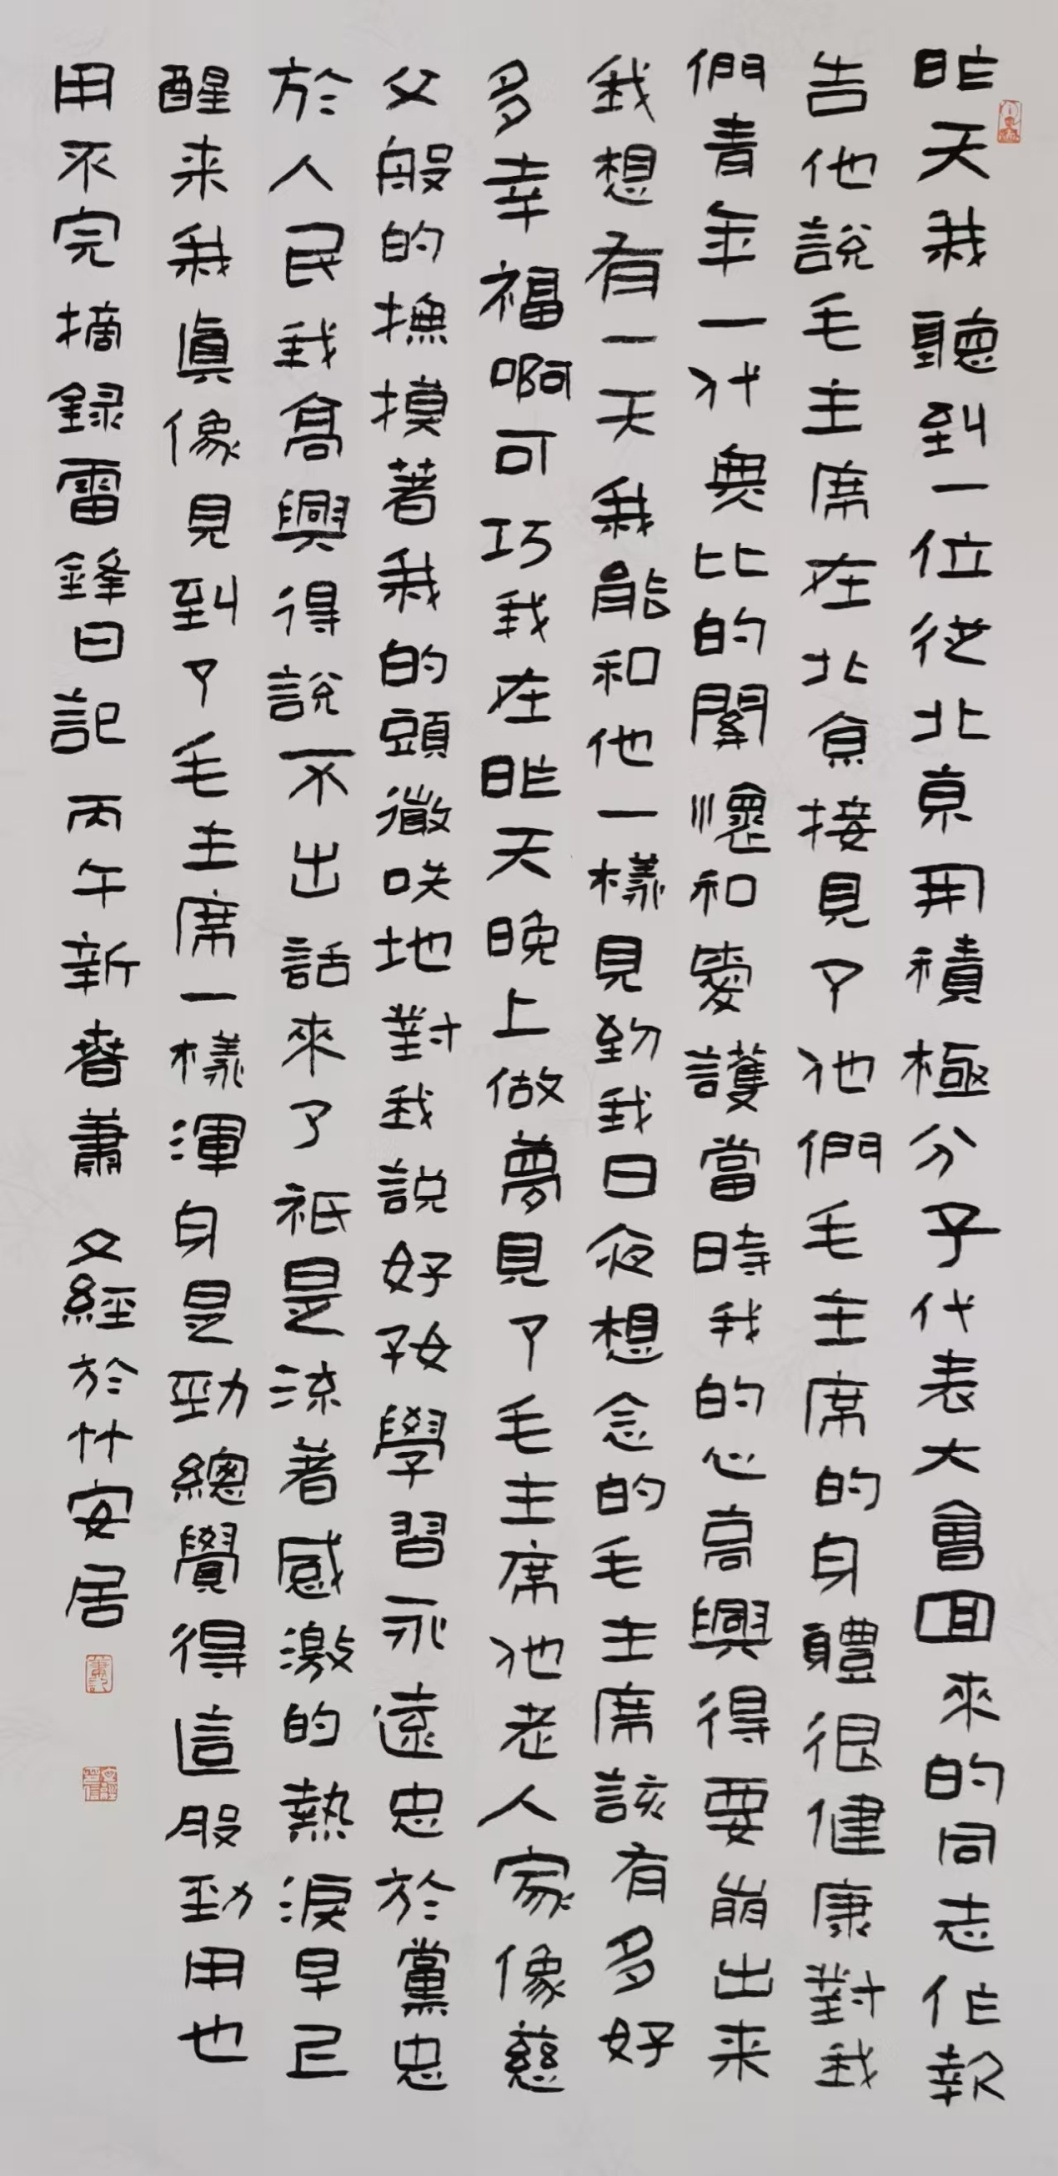 昨天我聽到一位從北京開積極分子代表大會回來的同志作報
告他說毛主席在北京接見了他們毛主席的身體很健康對我
們青年一代無比的關懷和愛護當時我的心高興得要崩出来
我想有一天我能和他一樣見到我日夜想念的毛主席該有多好
多幸福啊可巧我在昨天晚上做夢見了毛主席他老人家像慈
父般的撫摸著我的頭微咲地對我説好孩學習永遠忠於黨忠
於人民我高興得說不出話來了祇是流著感激的熱淚早已
醒来我眞像見到了毛主席一樣渾身是勁總覺得這股勁用也
用不完摘録雷鋒日記 丙午新春蕭 文經於竹安居